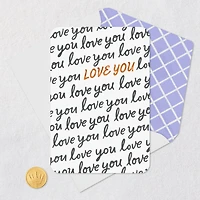 love you love you
you love you love
love you love you
love you LOVE YOU
you love you love
love you love you
you love you love
love you love you
you love you love
love you love you